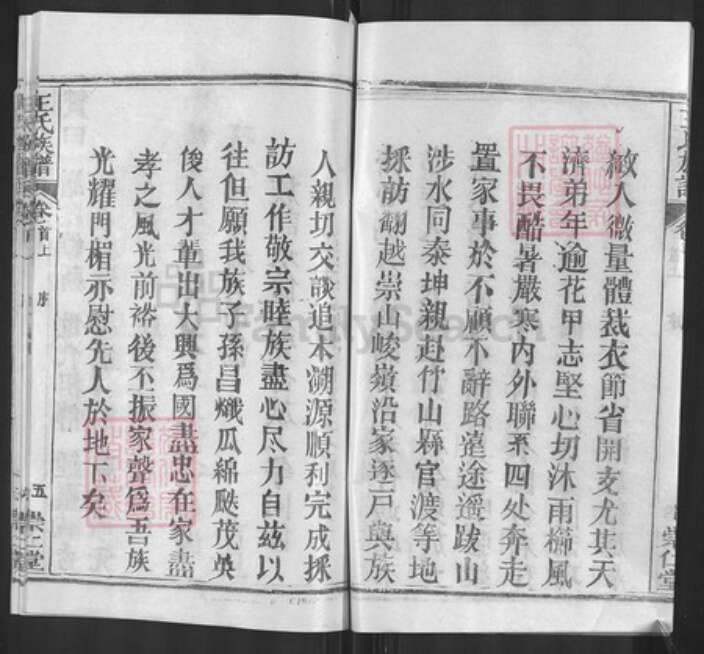 敵人微量體裁衣節省開支尤其天
濟弟年逾花甲志堅心切沐雨櫛風
不畏酷暑嚴寒內外聯系四处奔走
置家事於不顧不辭路遠途遥跋山
涉水同泰坤親赴竹山縣官渡等地
採訪翻越崇山峻嶺沿家逐戶與族
人親切交談追本溯源順利完成採
訪工作敬宗睦族盡心尽力自玆以
往但願我族子孫昌熾瓜綿瓞茂英
俊人才輩出大興爲國盡忠在家盡
孝之風光前裕後丕振家聲爲吾族
光耀門楣亦慰先人於地下矣
王氏族譜 卷首上 序 五 崇仁堂
FamilySearch